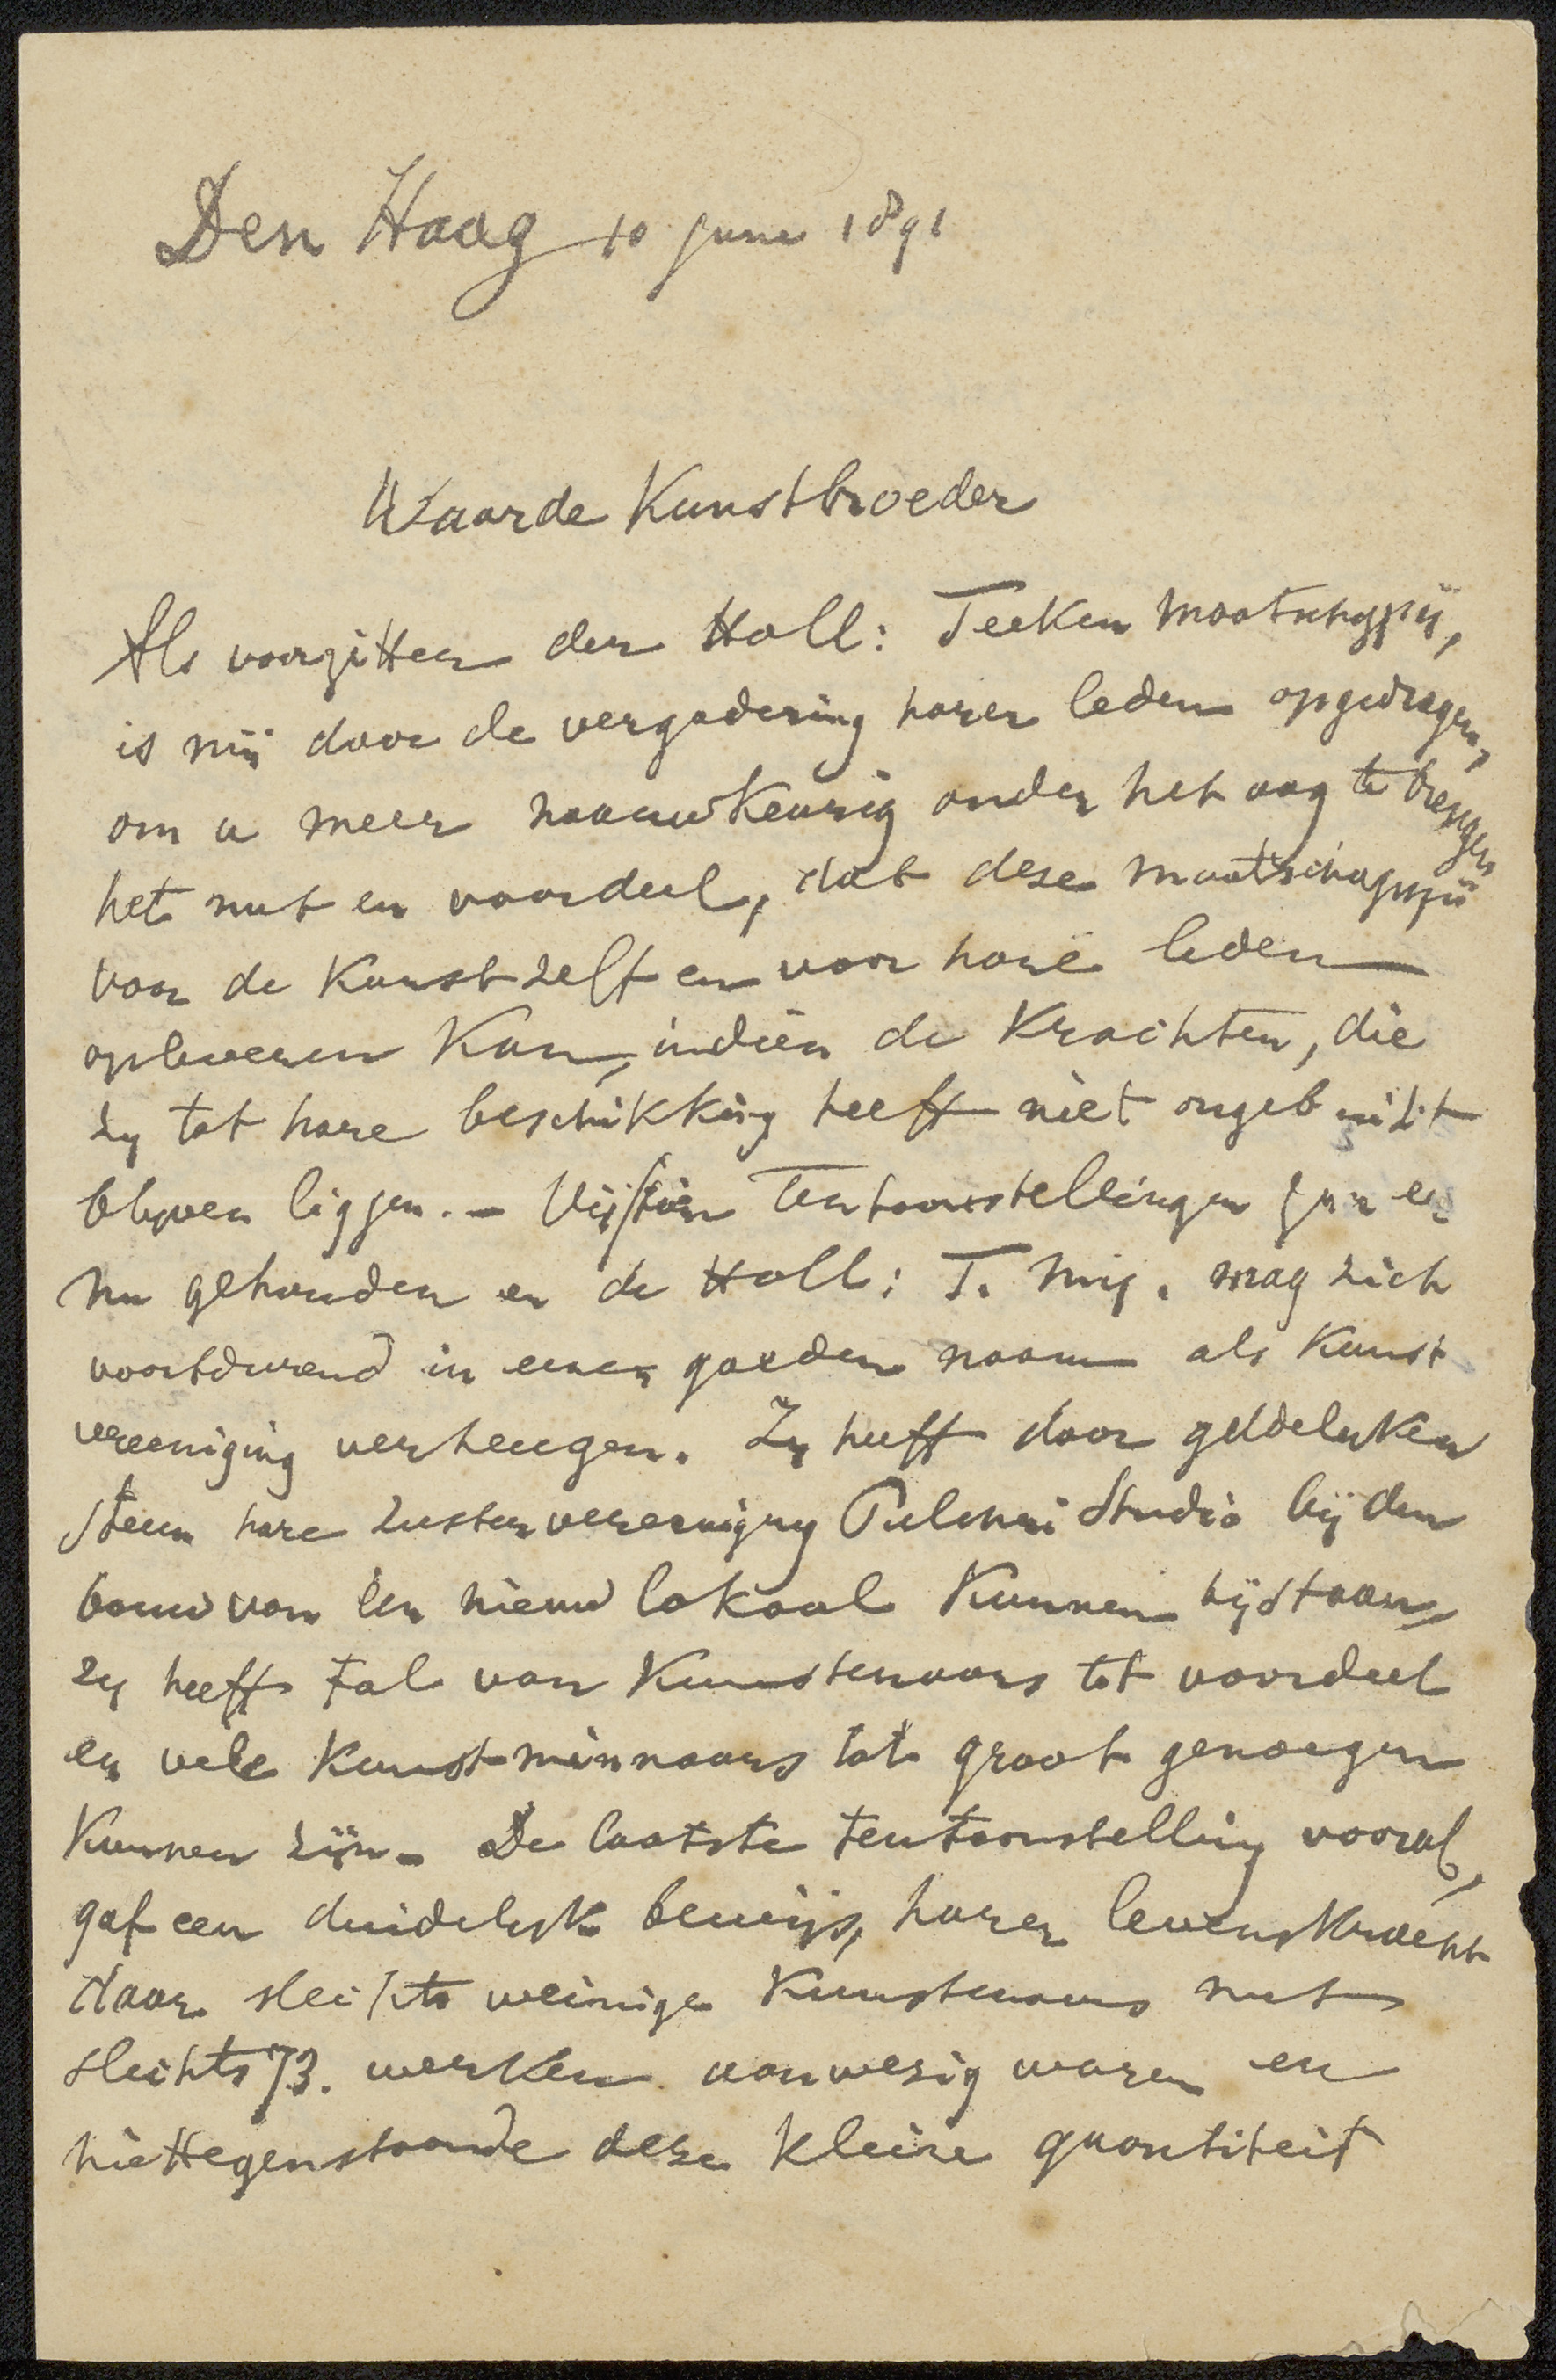 Den Haag 10 June 1891
Waarde Kunstbroeder
Als voorzitter der Holl: Teeken Maatschappij,
is mij door de vergadering harer leden opgedragen,
om u meer naauwkeurig onder het oog te brengen
het nut en voordeel, dat deze Maatschappij
voor de Kunst zelf en voor hare leden
opleveren Kan, indien de Krachten, die
zy tot hare beschikking heeft niet ongebruikt
blyven liggen. – Vijftien Tentoonstellingen zyn er
nu gehouden en de Holl: T. Mij. mag zich
voortdurend in eenen goeden naam als Kunst
vereeniging verheugen. Zy heeft door geldelyken
steun hare zustervereeniging Pulchri Studio bij den
bouw van een nieuw lokaal Kunnen bijstaan,
zy heeft tal van Kunstenaars tot voordeel
en vele Kunstminnaars tot groot genoegen
Kunnen zijn. De laatste tentoonstelling vooral,
gaf een duidelyk bewijs, harer levenskracht
daar slechts weinige Kunstenaars met
slechts 73. werken aanwezig waren en
niettegenstaande deze kleine quantiteit